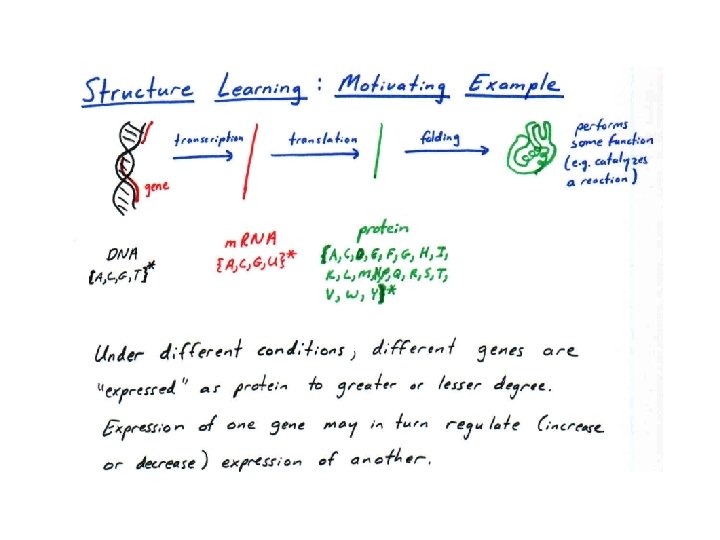 Structure Learning : Motivating Example
transcription
translation
folding
performs
some function
(e.g. catalyzes
a reaction)
gene
DNA
{A,C,G,T}*
mRNA
{A,C,G,U}*
protein
{A,C,D,E,F,G,H,I,
K,L,M,N,P,Q,R,S,T,
V,W,Y}*
Under different conditions, different genes are
"expressed" as protein to greater or lesser degree.
Expression of one gene may in turn regulate (increase
or decrease) expression of another.